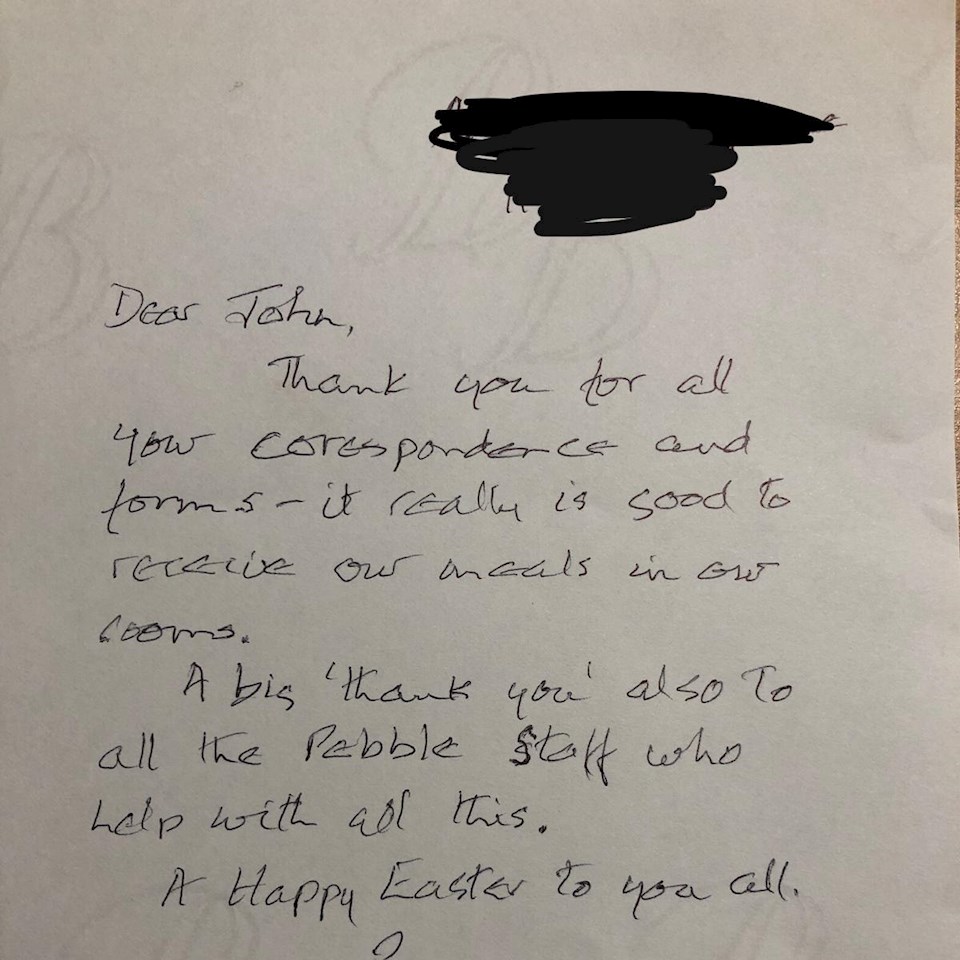 Dear John,
Thank you for all
your corespondence and
forms - it really is good to
receive our meals in our
rooms.
A big 'thank you' also to
all the Pebble Staff who
help with all this.
A Happy Easter to you all.